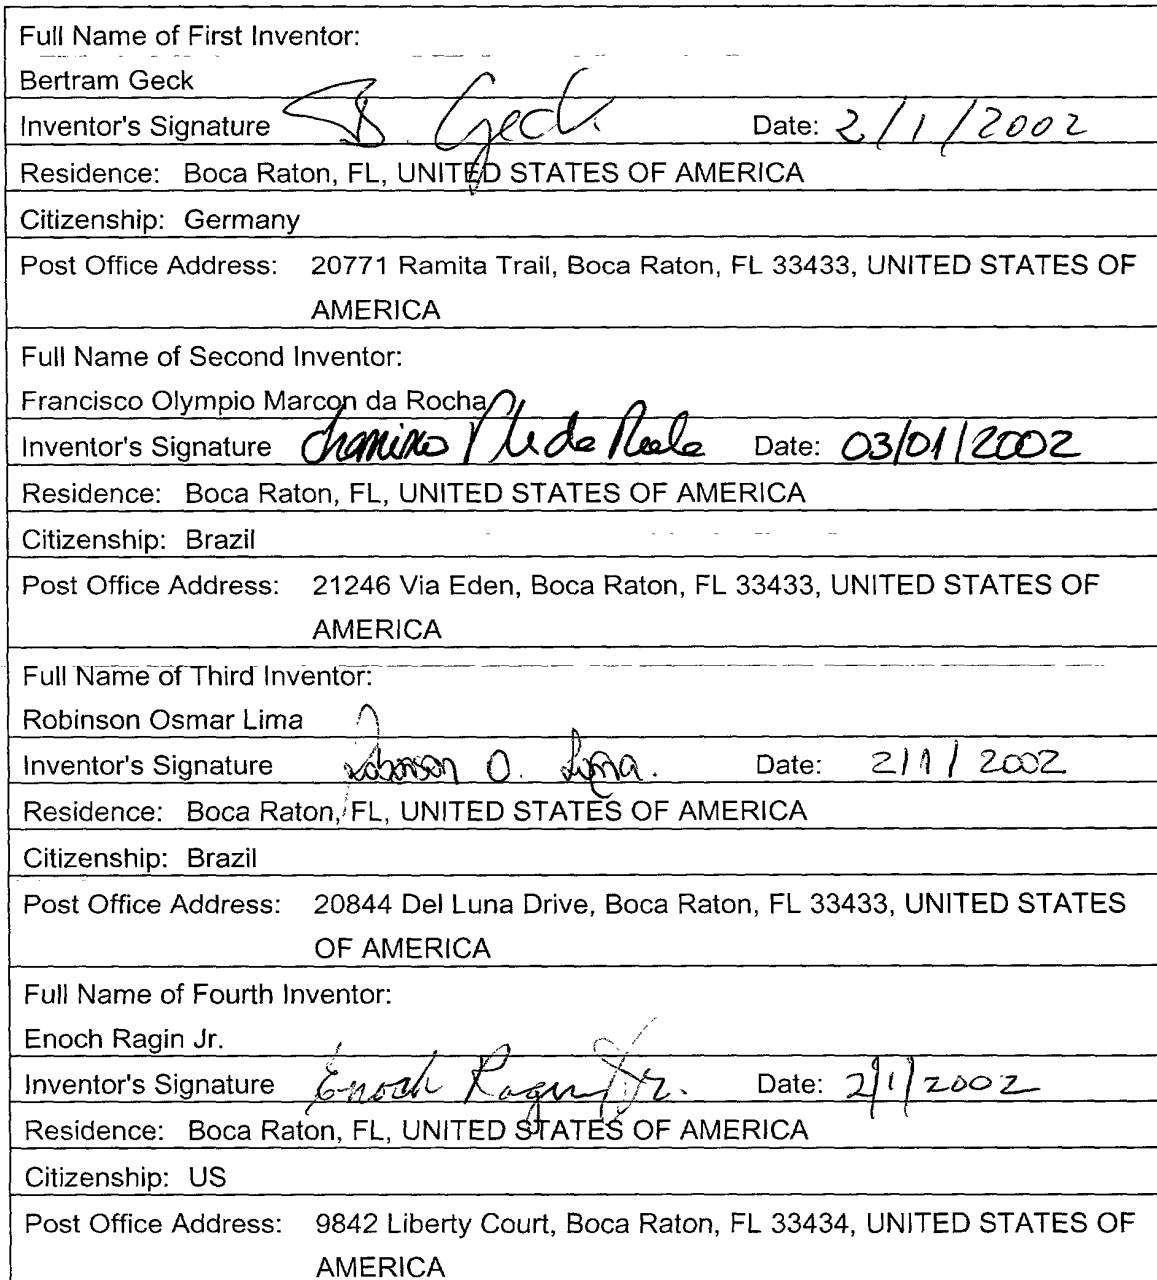 Full Name of First Inventor:
Bertram Geck
Inventor's Signature B. Geck Date: 2/1/2002
Residence: Boca Raton, FL, UNITED STATES OF AMERICA
Citizenship: Germany
Post Office Address: 20771 Ramita Trail, Boca Raton, FL 33433, UNITED STATES OF
AMERICA
Full Name of Second Inventor:
Francisco Olympio Marcon da Rocha
Inventor's Signature Date: 03/01/2002
Residence: Boca Raton, FL, UNITED STATES OF AMERICA
Citizenship: Brazil
Post Office Address: 21246 Via Eden, Boca Raton, FL 33433, UNITED STATES OF
AMERICA
Full Name of Third Inventor:
Robinson Osmar Lima
Inventor's Signature Robinson O. Lima. Date: 2/1/2002
Residence: Boca Raton, FL, UNITED STATES OF AMERICA
Citizenship: Brazil
Post Office Address: 20844 Del Luna Drive, Boca Raton, FL 33433, UNITED STATES
OF AMERICA
Full Name of Fourth Inventor:
Enoch Ragin Jr.
Inventor's Signature Enoch Ragin Jr. Date: 2/1/2002
Residence: Boca Raton, FL, UNITED STATES OF AMERICA
Citizenship: US
Post Office Address: 9842 Liberty Court, Boca Raton, FL 33434, UNITED STATES OF
AMERICA